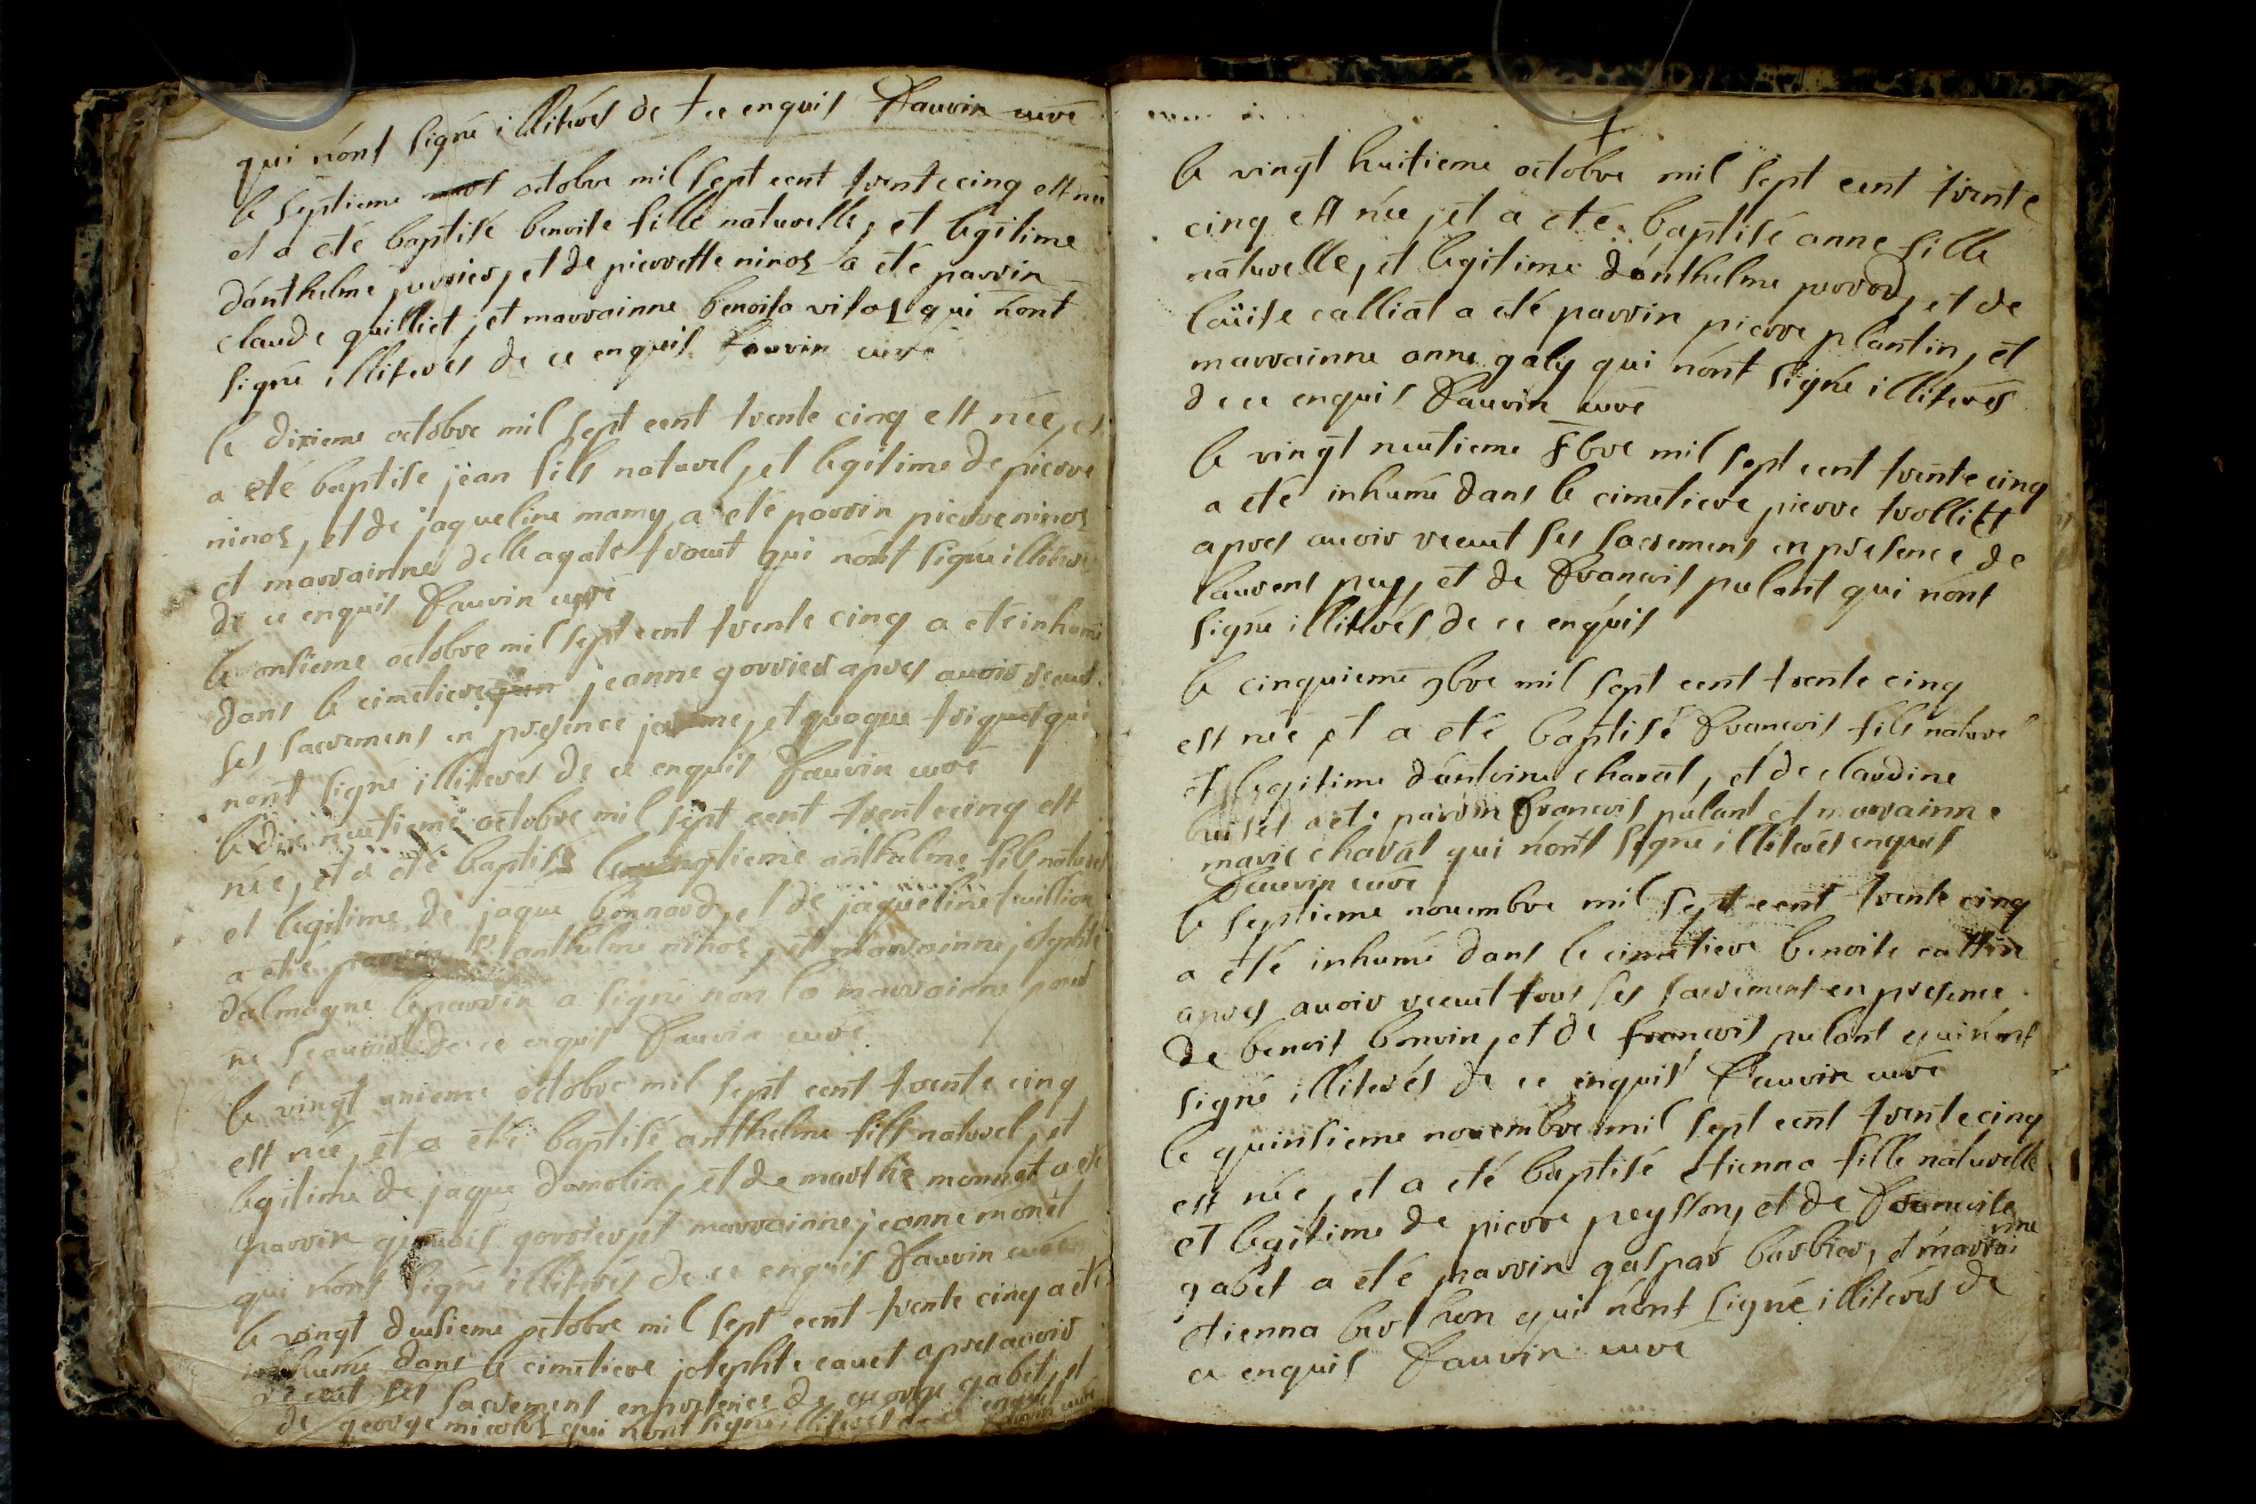 qui nónt signé illiterés de + ce enquis Fauvin curé
le septieme octobre mil sept cent trente cinq est née
et a eté baptisé benoite fille naturelle, et legitime
dánthelme juvrier, et de pierrette ninos a eté parrin
claude guilliet, et marrainne benoita vitos qui nont
signé illiterés de ce enquis Fauvin curé
le dixieme octobre mil sept cent trente cinq est née, et
a eté baptisé jean fils naturel, et legitime de pierre
ninos, et de jaqueline mamy a eté parrin pierre ninos
et marrainne delle agate trout qui nónt signé illiterés
de ce enquis Fauvin curé
le onsieme octobre mil sept cent trente cinq a eté inhumé
dans le cimetiere jeanne gorrier apres avoir receut
ses sacremens en presence et triquet qui
nont signé illiterés de ce enquis Fauvin curé
le dix neutieme octobre mil sept cent trente cinq est
née, et a eté baptisé anthelme fils naturel
et legitime de jaque bonnard, et de jaqueline tuillion
a eté anthelme ninos, et marrainne josephte
dalmagne le parrin a signé non la marrainne pour
ne scavoir de ce enquis Fauvin curé
le vingt unieme octobre mil sept cent trente cinq
est née, et a eté baptisé anthelme fils naturel, et
legitime de jaque damolin, et de marthe monnet a eté
parrin gorrier, et marrainne jeanne monet
qui nónt signé illiterés de ce enquis Fauvin curé
le vingt dusieme octobre mil sept cent trente cinq a eté
inhumé dans le cimetiere josephte cauet apres avoir
receut ses sacremens en presence de george gabet, et
de george micolos qui nónt signé illiterés de ce enquis Fauvin curé
+
le vingt huitieme octobre mil sept cent trente
cinq est née, et a eté baptisé anne fille
naturelle, et legitime dánthelme perrod, et de
loüise calliat a eté parrin pierre plantin, et
marrainne anne galy qui nónt signé illiterés
de ce enquis Fauvin curé
le vingt neutieme 8bre mil sept cent trente cinq
a eté inhumé dans le cimetiere pierre trolliet
apres avoir receut ses sacremens en presence de
laurens puy, et de Francois pulant qui nónt
signé illiterés de ce enquis
le cinquieme 9bre mil sept cent trente cinq
est née et a eté baptisé Francois fils naturel
et legitime dántoine charat, et de claudine
buiset a eté parrin Francois pulant et marrainne
marie charat qui nónt signé illiterés enquis
Fauvin curé
le septieme novembre mil sept cent trente cinq
a eté inhumé dans le cimetiere benoite cattin
apres avoir receut tous ses sacremens en presence
de benoit bonvin, et de francois pulant qui nónt
signé illiterés de ce enquis Fauvin curé
le quinsieme novembre mil sept cent trente cinq
est née, et a eté baptisé etienna fille naturelle
et legitime de pierre peysson, et de Francoise
gabet a eté parrin gaspar barbier, et marrainne
etienna berthon qui nónt signé illiterés de
ce enquis Fauvin curé